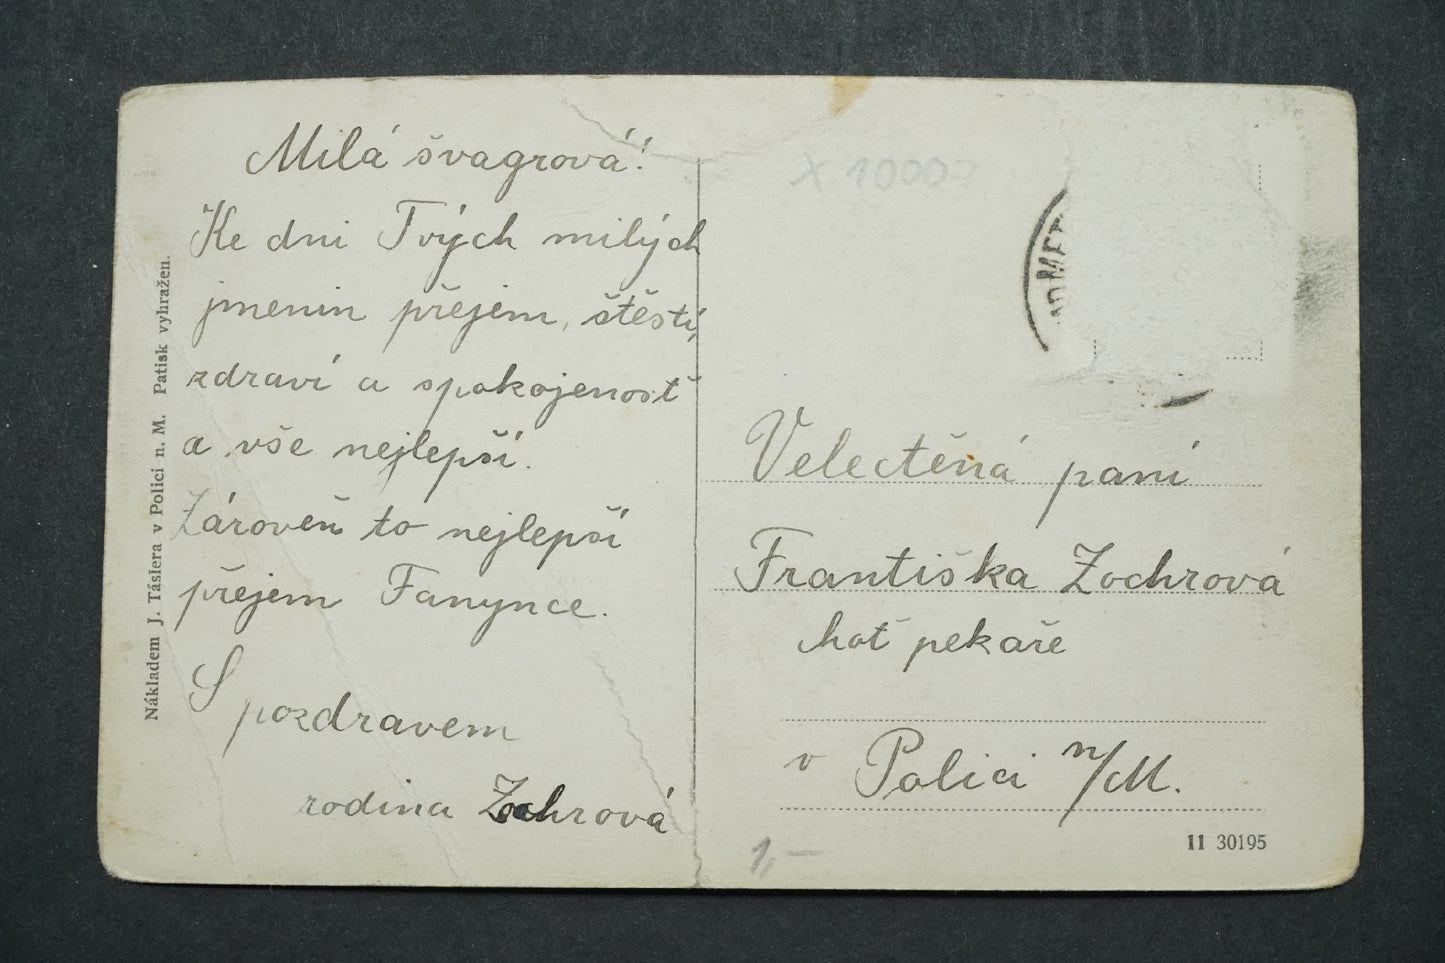 Milá švagrová!
Ke dni Tvých milých
jmenin přejem, štěstí,
zdraví a spokojenosť
a vše nejlepší.
Zároveň to nejlepší
přejem Fanynce.
S pozdravem
rodina Zochrová
Nákladem J. Táslera v Polici n. M. Patisk vyhražen.
X 10007
Velectěná paní
Františka Zochrová
hoť pekaře
v Polici n/M.
11 30195
1,—